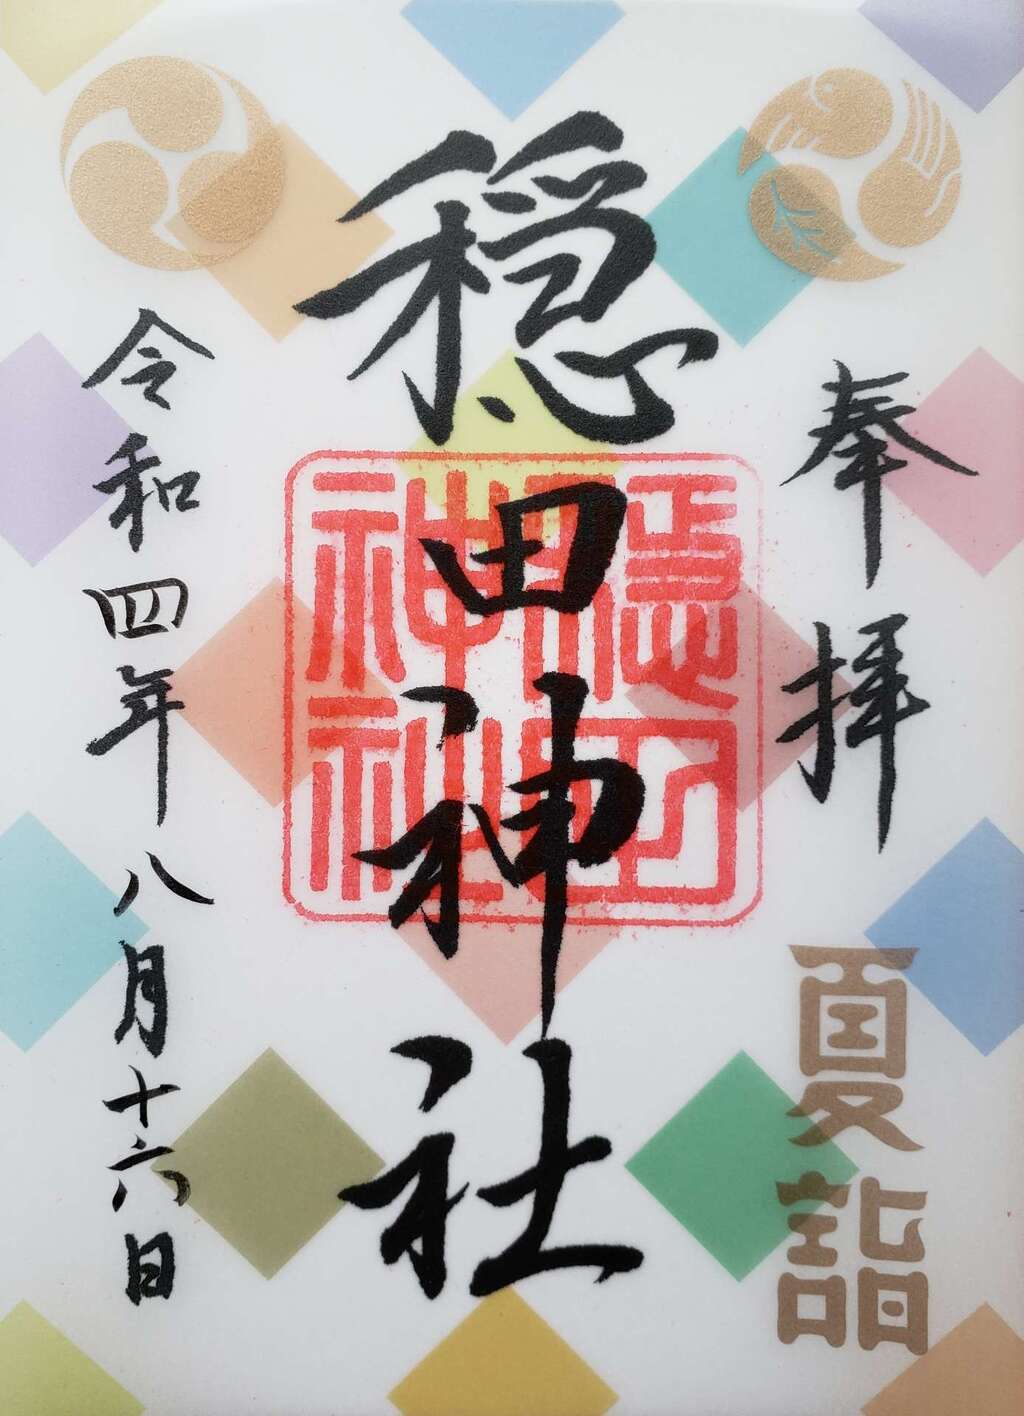 奉拝
夏詣
穏田神社
穏田神社
令和四年八月十六日